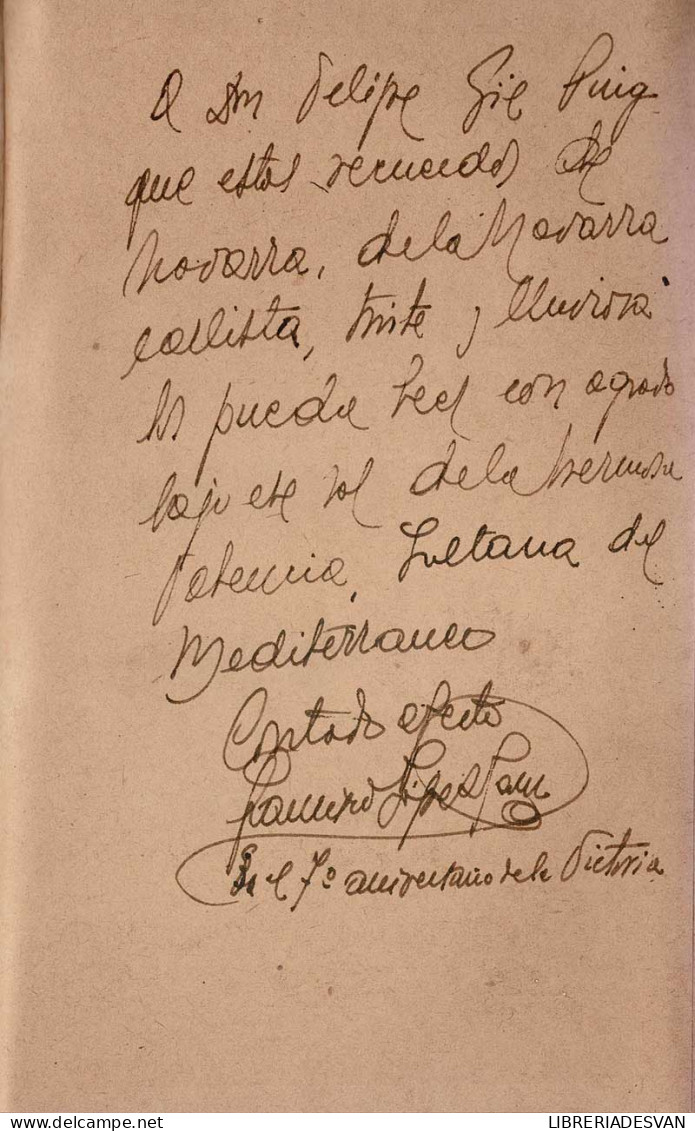 A Don Felipe Gil Puig
que estos recuerdos de
Navarra, de la Navarra
carlista, triste y lluviosa
los pueda leer con agrado
bajo ese sol de la hermosa
Valencia, Sultana del
Mediterraneo
Con todo afecto
En el 7º aniversario de la Victoria
LIBRERIADESVAN